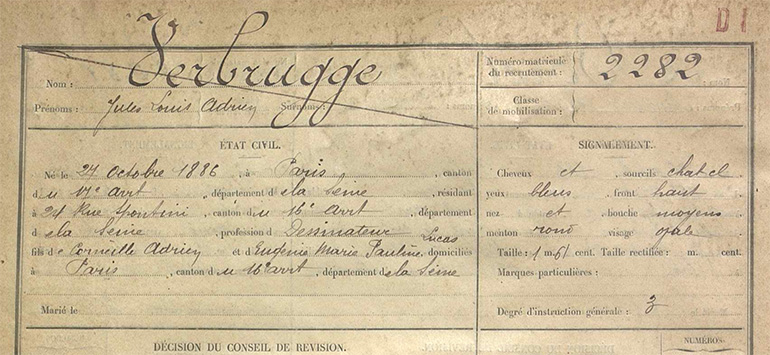 D 1
Nom : Verbrugge
Prénoms : Jules Louis Adrien Surnoms :
Numéro matricule du recrutement : 2282
Classe de mobilisation :
ÉTAT CIVIL.
Né le 27 Octobre 1886, à Paris, canton
du 17e Arrt, département de la Seine, résidant
à 24 Rue Spontini, canton du 16e Arrt, département
de la Seine, profession de Dessinateur
fils de Corneille Adrien et d'Eugénie Marie Pauline Lucas, domiciliés
à Paris, canton du 16e arrt, département de la Seine
Marié le
SIGNALEMENT.
Cheveux et sourcils chatel
yeux bleus, front haut
nez et bouche moyens
menton rond visage ovale
Taille : 1 m. 61 cent. Taille rectifiée : m. cent.
Marques particulières :
Degré d'instruction générale : 3
DÉCISION DU CONSEIL DE REVISION.
NUMÉROS.